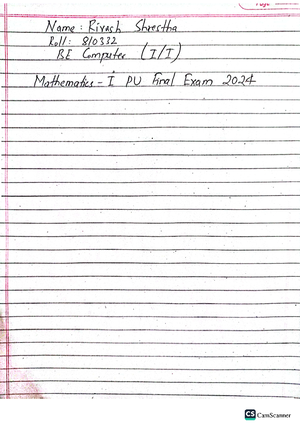 Page
Name : Rivash Shrestha
Roll: 810332
BE Computer (I/I)
Mathematics - I PU Final Exam 2024
CS CamScanner